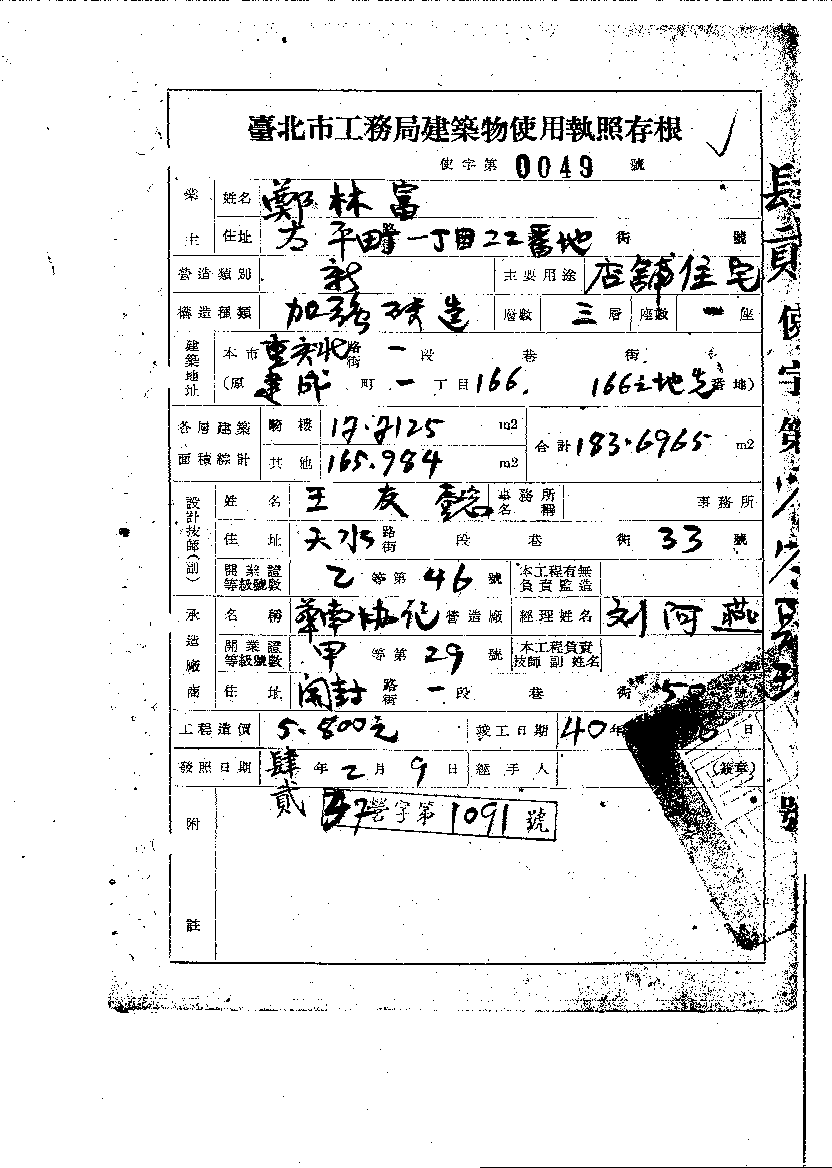 臺北市工務局建築物使用執照存根
使字第 0049 號
業主 姓名 鄭林富
住址 太平町一丁目22番地 街 號
營造類別 新 主要用途 店舖住宅
構造種類 加強磚造 層數 三層 座數 一座
建築地址 本市重慶北路街 一段 巷 街
(原 建成町一丁目166. 166之地先番地)
各層建築面積綜計 騎樓 17.7125 m2 合計 183.6965 m2
其他 165.984 m2
設計技師(副) 姓名 王友 事務所名稱 事務所
住址 天水路街 段 巷 街 33 號
開業證等級號數 乙等第 46 號 本工程有無負責監造
承造廠商 名稱 華南協記營造廠 經理姓名 刘阿燕
開業證等級號數 甲等第 29 號 本工程負責技師 副 姓名
住址 開封路街 一段 巷 街 50 號
工程造價 5.800元 竣工日期 40年 日
發照日期 肆貳年2月9日 經手人 (簽章)
附註 37營字第1091號
使字第
號